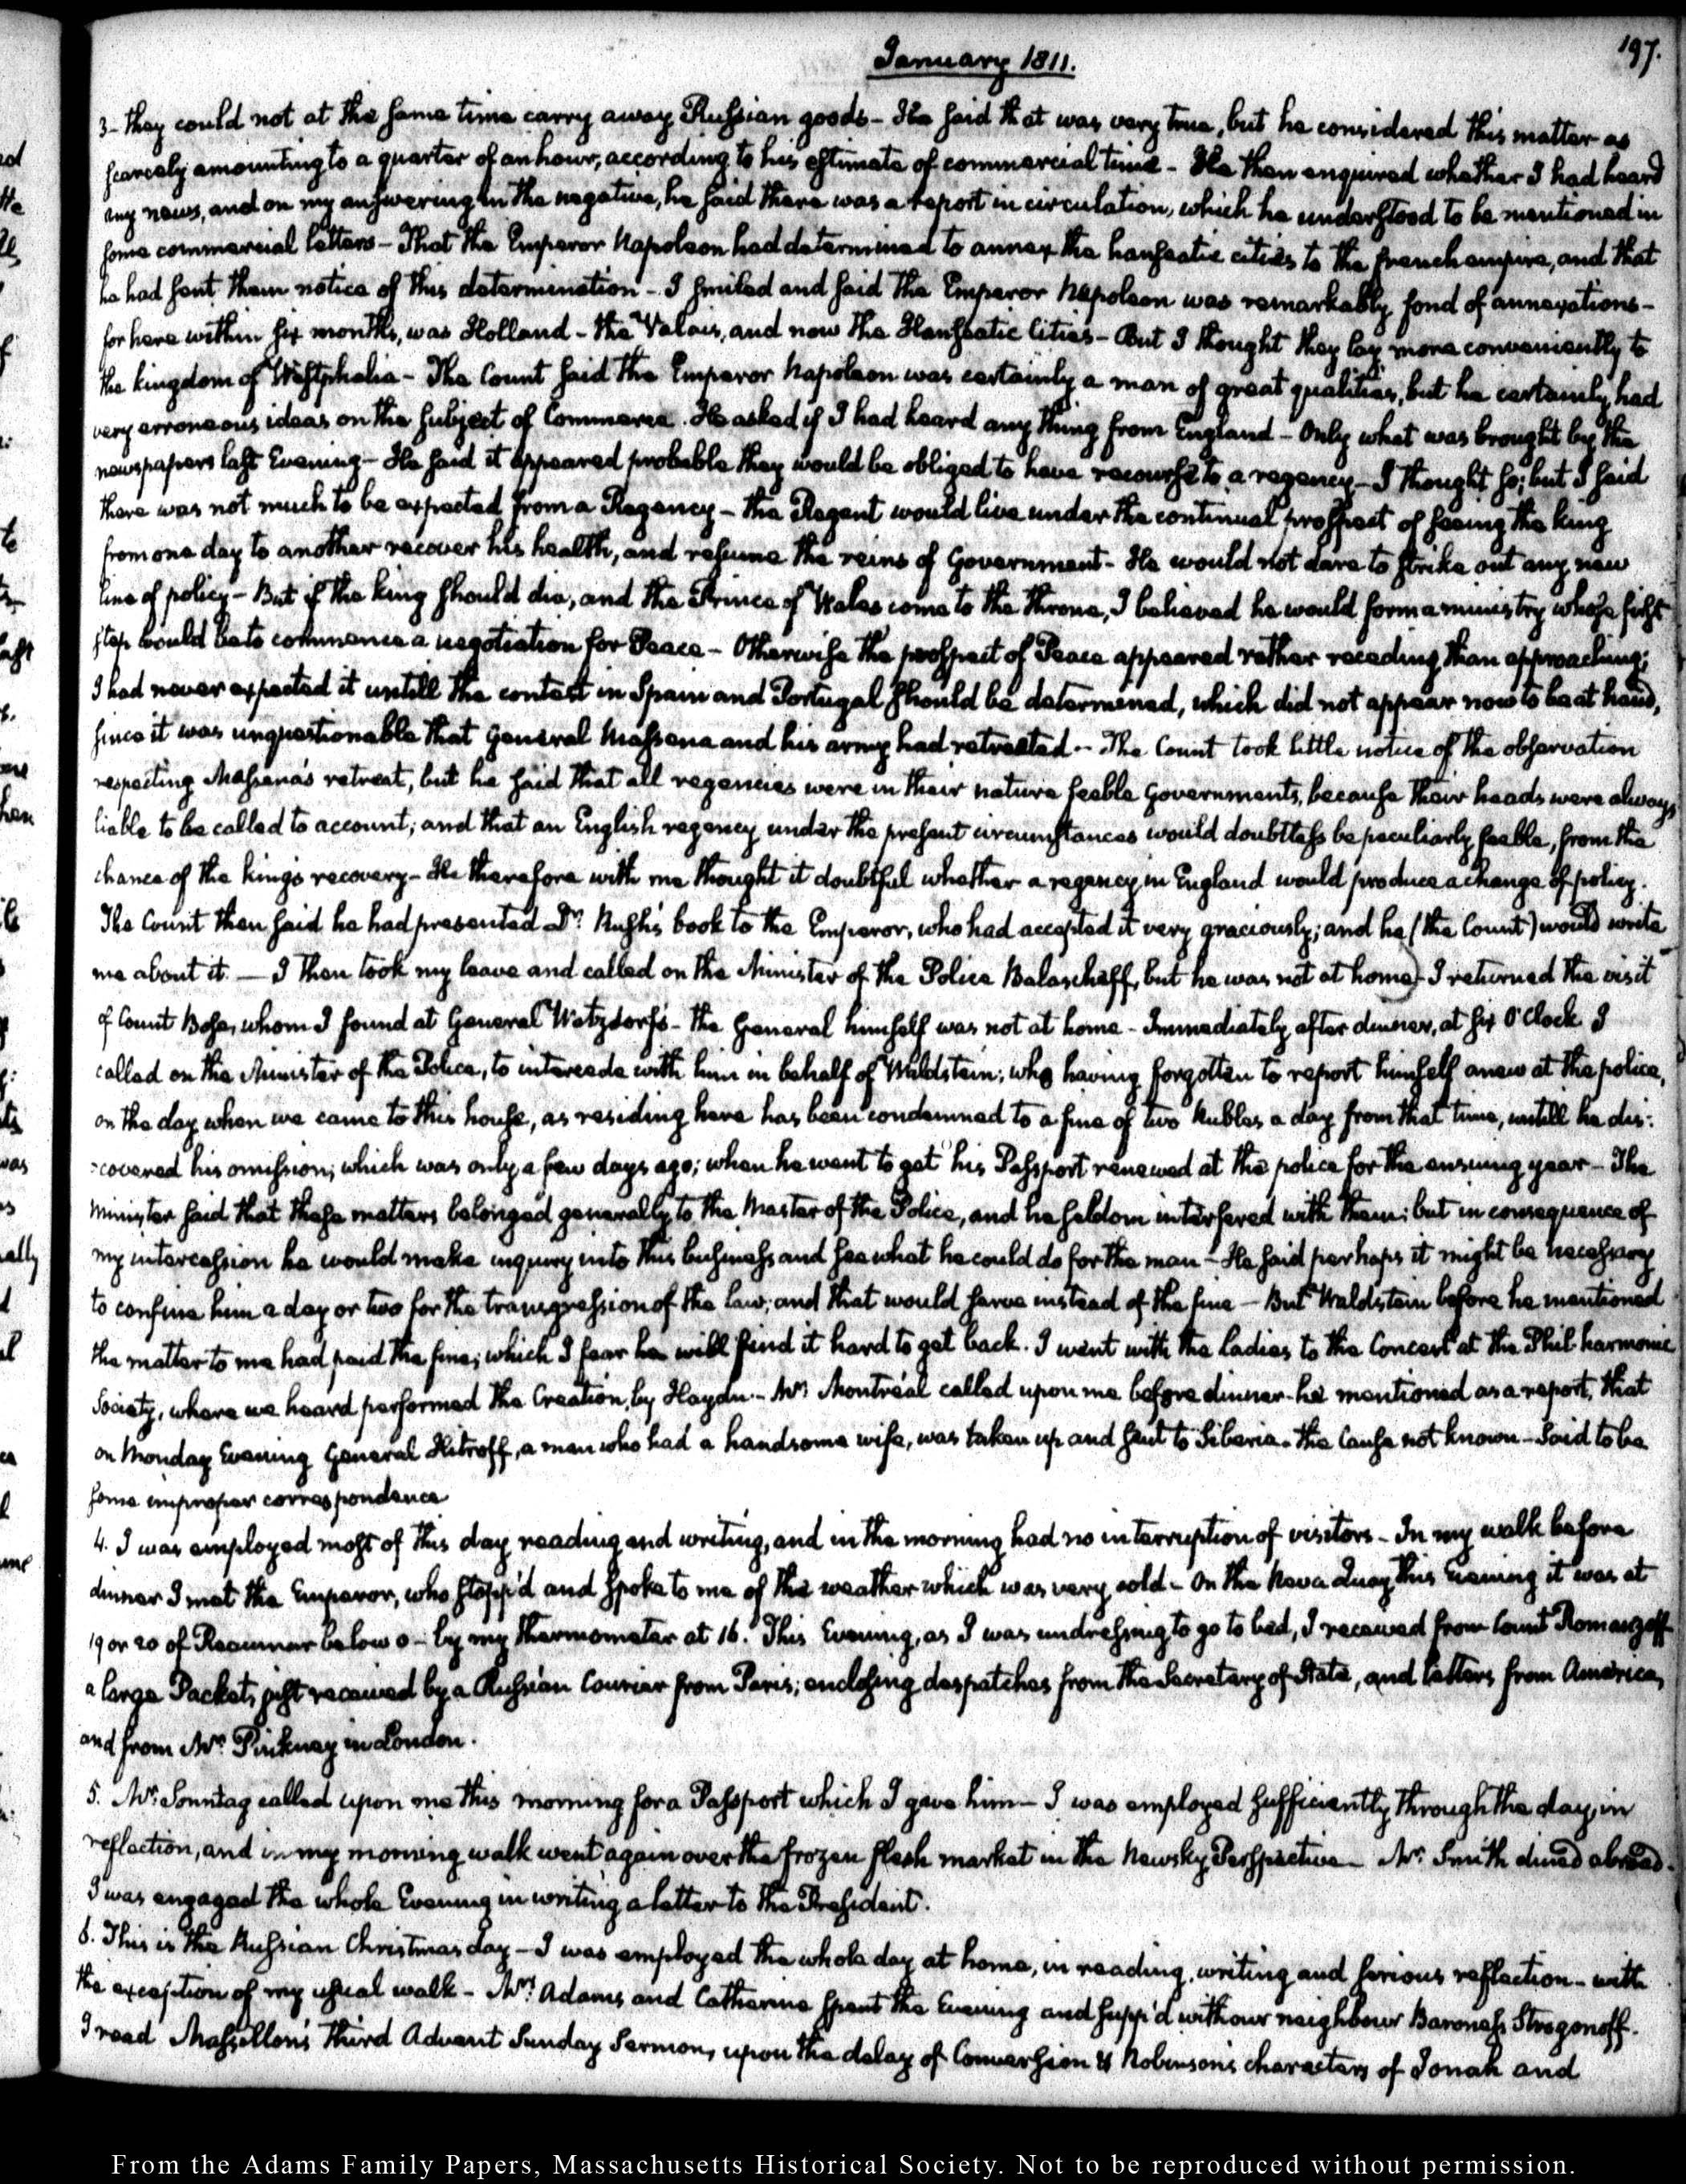 January 1811.
197.
3- they could not at the same time carry away Russian goods - He said that was very true, but he considered this matter as
scarcely amounting to a quarter of an hour, according to his estimate of commercial time - He then enquired whether I had heard
any news, and on my answering in the negative, he said there was a report in circulation, which he understood to be mentioned in
some commercial letters - That the Emperor Napoleon had determined to annex the hanseatic cities to the french empire, and that
he had sent them notice of this determination - I smiled and said the Emperor Napoleon was remarkably fond of annexations -
for here within six months, was Holland - the Valais, and now the Hanseatic Cities - But I thought they lay more conveniently to
the kingdom of Westphalia - The Count said the Emperor Napoleon was certainly a man of great qualities, but he certainly had
very erroneous ideas on the subject of Commerce. He asked if I had heard any thing from England - Only what was brought by the
newspapers last Evening - He said it appeared probable they would be obliged to have recourse to a regency - I thought so; but I said
there was not much to be expected from a Regency - the Regent would live under the continual prospect of seeing the king
from one day to another recover his health, and resume the reins of Government - He would not dare to strike out any new
line of policy - But if the king should die, and the Prince of Wales come to the throne, I believed he would form a ministry whose first
step would be to commence a negotiation for Peace - Otherwise the prospect of Peace appeared rather receding than approaching;
I had never expected it untill the contest in Spain and Portugal should be determined, which did not appear now to be at hand,
since it was unquestionable that General Massena and his army had retreated - The Count took little notice of the observation
respecting Massena's retreat, but he said that all regencies were in their nature feeble Governments, because their heads were always
liable to be called to account; and that an English regency under the present circumstances would doubtless be peculiarly feeble, from the
chance of the king's recovery - He therefore with me thought it doubtful whether a regency in England would produce a change of policy.
The Count then said he had presented Dr. Rush's book to the Emperor, who had accepted it very graciously; and he (the Count) would write
me about it. — I then took my leave and called on the Minister of the Police Balascheff, but he was not at home) - I returned the visit
of Count Bose, whom I found at General Watzdorf's - the General himself was not at home - Immediately after dinner, at six O'Clock I
called on the Minister of the Police, to intercede with him in behalf of Waldstein; who having forgotten to report himself anew at the police,
on the day when we came to this house, as residing here has been condemned to a fine of two Rubles a day from that time, untill he dis:
:covered his omission; which was only a few days ago; when he went to get his Passport renewed at the police for the ensuing year - The
Minister said that these matters belonged generally to the Master of the Police, and he seldom interfered with them; but in consequence of
my intercession he would make inquiry into this business and see what he could do for the man - He said perhaps it might be necessary
to confine him a day or two for the transgression of the law; and that would serve instead of the fine - But Waldstein before he mentioned
the matter to me had paid the fine; which I fear he will find it hard to get back. I went with the ladies to the Concert at the Philharmonic
Society, where we heard performed the Creation, by Haydn. - Mr. Montréal called upon me before dinner - he mentioned as a report, that
on Monday Evening General Hitroff, a man who had a handsome wife, was taken up and sent to Siberia - the Cause not known - Said to be
some improper correspondence
4. I was employed most of this day reading and writing, and in the morning had no interruption of visitors - In my walk before
dinner I met the Emperor, who stopp'd and spoke to me of the weather which was very cold - On the Neva Quay this Evening it was at
19 or 20 of Reaumur below 0 - by my thermometer at 16. This Evening, as I was undressing to go to bed, I received from Count Romanzoff
a large Packet, just received by a Russian Courier from Paris; enclosing despatches from the Secretary of State, and letters from America,
and from Mr. Pinkney in London.
5. Mr. Sonntag called upon me this morning for a Passport which I gave him - I was employed sufficiently through the day, in
reflection, and in my morning walk went again over the frozen flesh market in the Newsky Perspective - Mr. Smith dined abroad.
I was engaged the whole Evening in writing a letter to the President.
6. This is the Russian Christmas day - I was employed the whole day at home, in reading, writing and serious reflection - with
the exception of my usual walk - Mrs. Adams and Catherine spent the Evening and supp'd with our neighbour Baroness Strogonoff.
I read Massillon's third Advent Sunday Sermon, upon the delay of Conversion & Robinson's characters of Jonah and
From the Adams Family Papers, Massachusetts Historical Society. Not to be reproduced without permission.